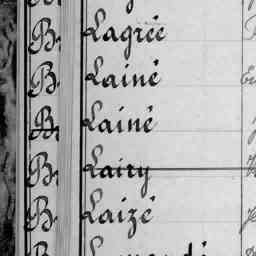 B. Lagrée
B. Lainé
B. Lainé
B. Lairy
B. Laizé
B.